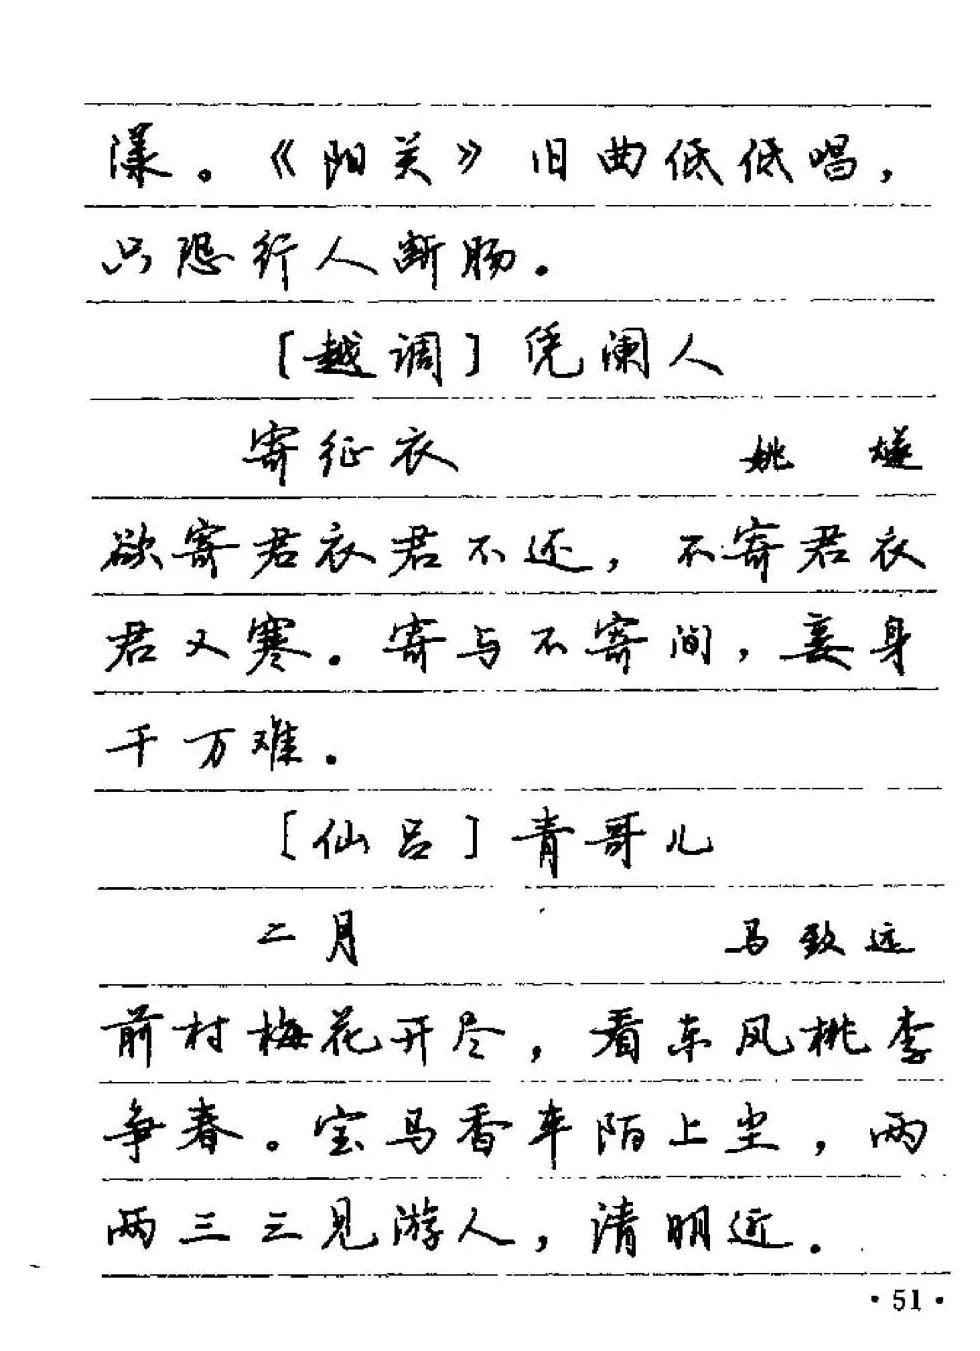 漾。《阳关》旧曲低低唱，
只恐行人断肠。
［越调］凭阑人
寄征衣 姚 燧
欲寄君衣君不还，不寄君衣
君又寒。寄与不寄间，妾身
千万难。
［仙吕］青哥儿
二月 马致远
前村梅花开尽，看东风桃李
争春。宝马香车陌上尘，两
两三三见游人，清明近。
·51·